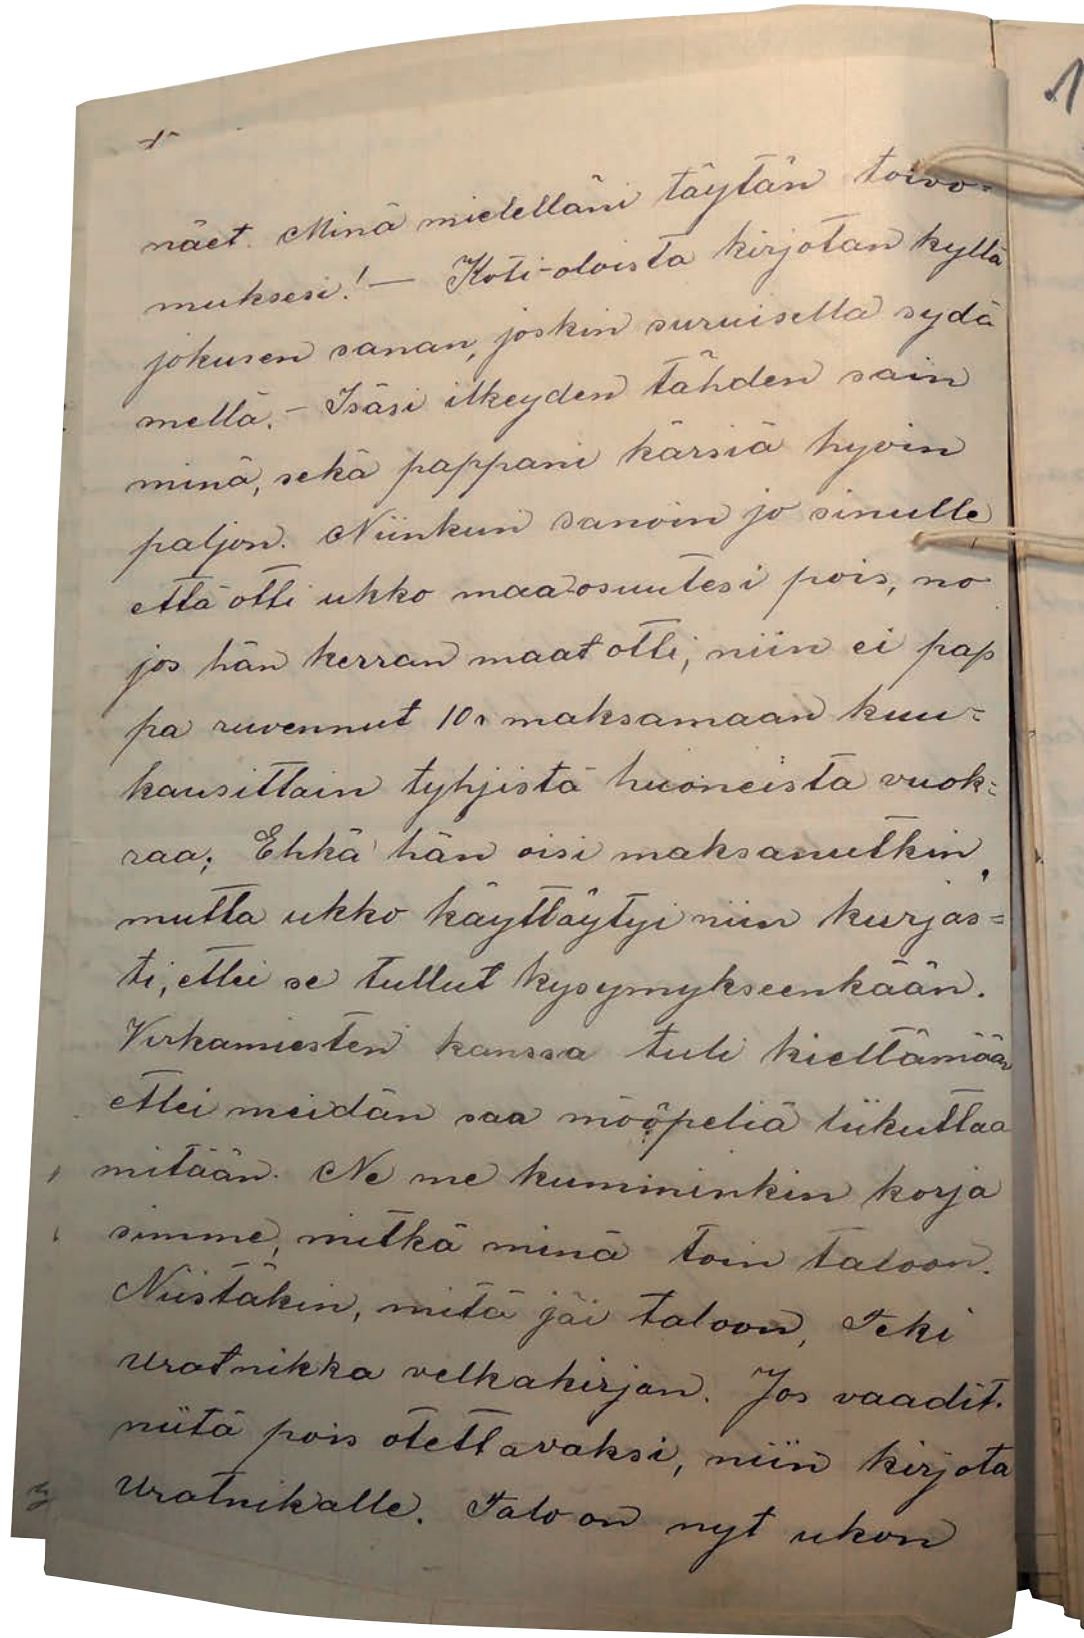 1
näet. Minä mielelläni täytän toivo=
muksesi! — Koti-oloista kirjotan kyllä
jokusen sanan, joskin suruisella sydä
mellä. — Isäsi ilkeyden tähden sain
minä, sekä pappani kärsiä hyvin
paljon. Niinkun sanoin jo sinulle
että otti ukko maaosuutesi pois, no
jos hän kerran maat otti, niin ei pap
pa ruvennut 10 r maksamaan kuu=
kausittain tyhjistä huoneista vuok=
raa; Ehkä hän oisi maksanutkin,
mutta ukko käyttäytyi niin kurjas=
ti, ettei se tullut kysymykseenkään.
Virkamiesten kanssa tuli kieltämään
ettei meidän saa mööpeliä liikuttaa
mitään. Ne me kumminkin korja
simme, mitkä minä toin taloon.
Niistäkin, mitä jäi taloon, teki
Uratnikka velkakirjan. Jos vaadit
niitä pois otettavaksi, niin kirjota
Uratnikalle. Talo on nyt ukon